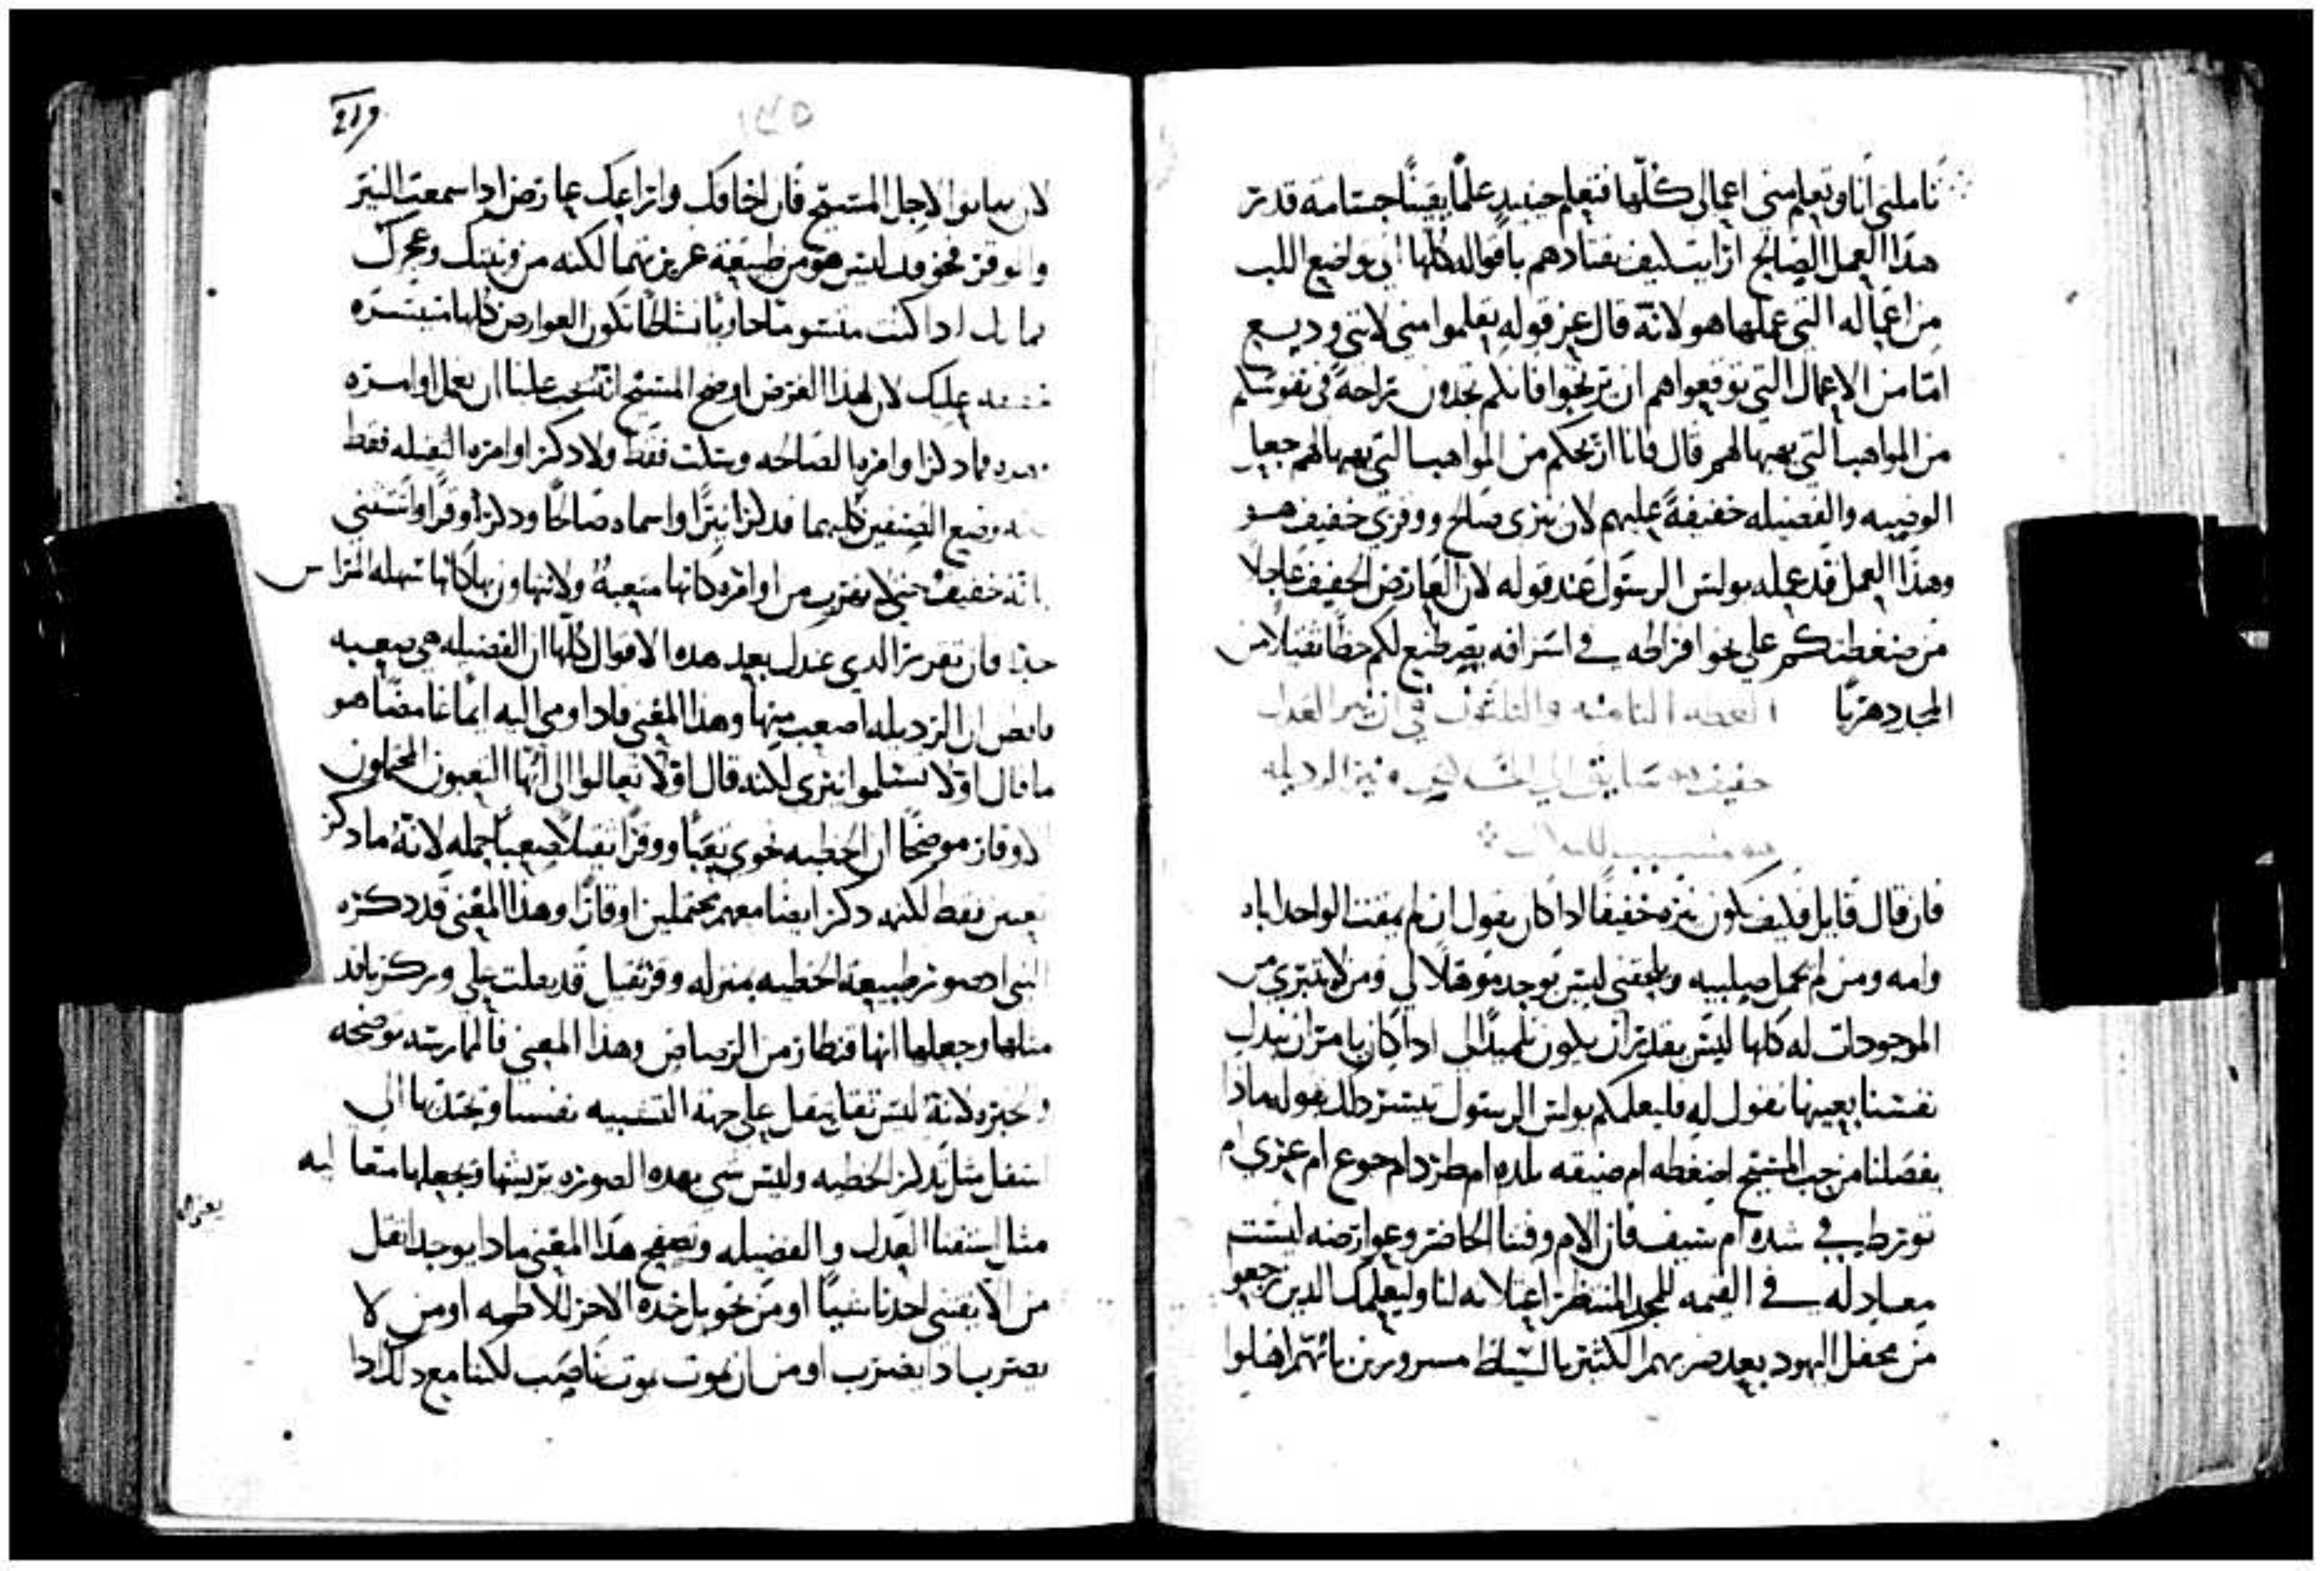 تاملني انا وتعلم مني اعمالي كلها فتعلم حينيد علمًا يقينًا جسامه قدر
هدا العمل الصالح ارايت كيف يقتادهم باقواله كلها الى تواضع اللب
من اعماله التي عملها هو لانه قال عن قوله تعلموا مني لانني وديع
امّا من الاعمال التي توقعوا هم ان يربحوا فانكم تجدون راحةً في نفوسكم
من المواهب التي يهبها لهم قال فانا اريحكم من المواهب التي يهبها لهم جعل
الوصيه والفضيله خفيفةً عليهم لان نيري صالح ووقري خفيف هو
وهذا العمل قد عمله بولس الرسول عند قوله لان العارض الخفيف عاجلا
من ضغطتكم على نحو افراطه في اسرافه يصطنع لكم حظا ثقيلا من
المجد دهريًا العظه الثامنه والثلثون في ان نير العدل
خفيف
فان قال قايل فكيف يكون نيره خفيفًا ادا كان يقول ان لم يمقت الواحد اباه
وامه ومن لم يحمل صليبه ويلحقني ليس يوجد موهلا لي ومن لا يتبرى من
الموجودات له كلها ليس يقدر ان يكون تلميدًا لي ادا كان يامر ان نبدل
نفسنا بعينها نقول له فليعلمكم بولس الرسول تيسر دلك بقوله مادا
يفصلنا من حب المسيح اضغطه ام ضيقه بلده ام طرد ام جوع ام عري ام
تورط في شده ام سيف فان الام وقتنا الحاضر وعوارضه ليست
معادله في القيمه للمجد المنتظر اعتلانه لنا وليعلمك الدين رجعوا
من محفل اليهود بعد ضربهم الكثير بالسياط مسرورين بانهم اهلوا
٢١٩
١٣٥
لان يهانوا لاجل المسيح فان اخافك وارتاعك عارض ادا سمعت النير
والوقر فخوفك ليس هو من طبيعة غريزتهما لكنه من ونيتك وعجزك
كما انك ادا كنت متشومًا حاويًا نشاطًا تكون العوارض كلها متيسره
خفيفه عليك لان لهذا الغرض اوضح المسيح انه يجب علينا ان نعمل اوامره
فما دكر اوامره الصالحه وسكت فقط ولا دكر اوامره الثقيله فقط
لكنه وضع الصنفين كليهما فدكر نيرًا واسماه صالحًا ودكر وقرًا واستثنى
بانه خفيف حتى لا تهرب من اوامره كانها متعبةً ولا تتهاون بها كانها سهله المراس
جدا فان تقرر الدي عندك بعد هده الاقوال كلها ان الفضيله هي صعبه
فافطن ان الرديله اصعب منها وهذا المعنى فادا اومى اليه ايماءً غامضًا هو
ما قال اولا تسلموا نيري لكنه قال اولا تعالوا الي ايها التعبون المحملون
الاوقار موضحًا ان الخطيه تحوي تعبًا ووقرًا ثقيلا صعبًا حمله لانه ما دكر
تعبين فقط لكنه دكر ايضا معهم محتملين اوقارًا وهذا المعنى قد دكره
النبي ادصور طبيعة الخطيه بمنزله وقر ثقيل قد ثقلت علي وزكريا قد
مثلها وجعلها انها قنطار من الرصاص وهذا المعنى فالممارسه توضحه
والخبره لانه ليس ثقل يثقل على جهة التشبيه نفسنا ويجتدبها الى
اسفل مثل تدكر الخطيه وليس شي بهده الصوره يريشها ويجعلها متعاليه
مثل استقتنا العدل والفضيله وتصفح هذا المعنى مادا يوجد اثقل
يعزى
من الا يقتني احدنا شيئًا او من تحويل خده الاخر للاطمه او من لا
يضرب ادا يضرب او من ان يموت بموت غاصب لكنا مع دلك ادا